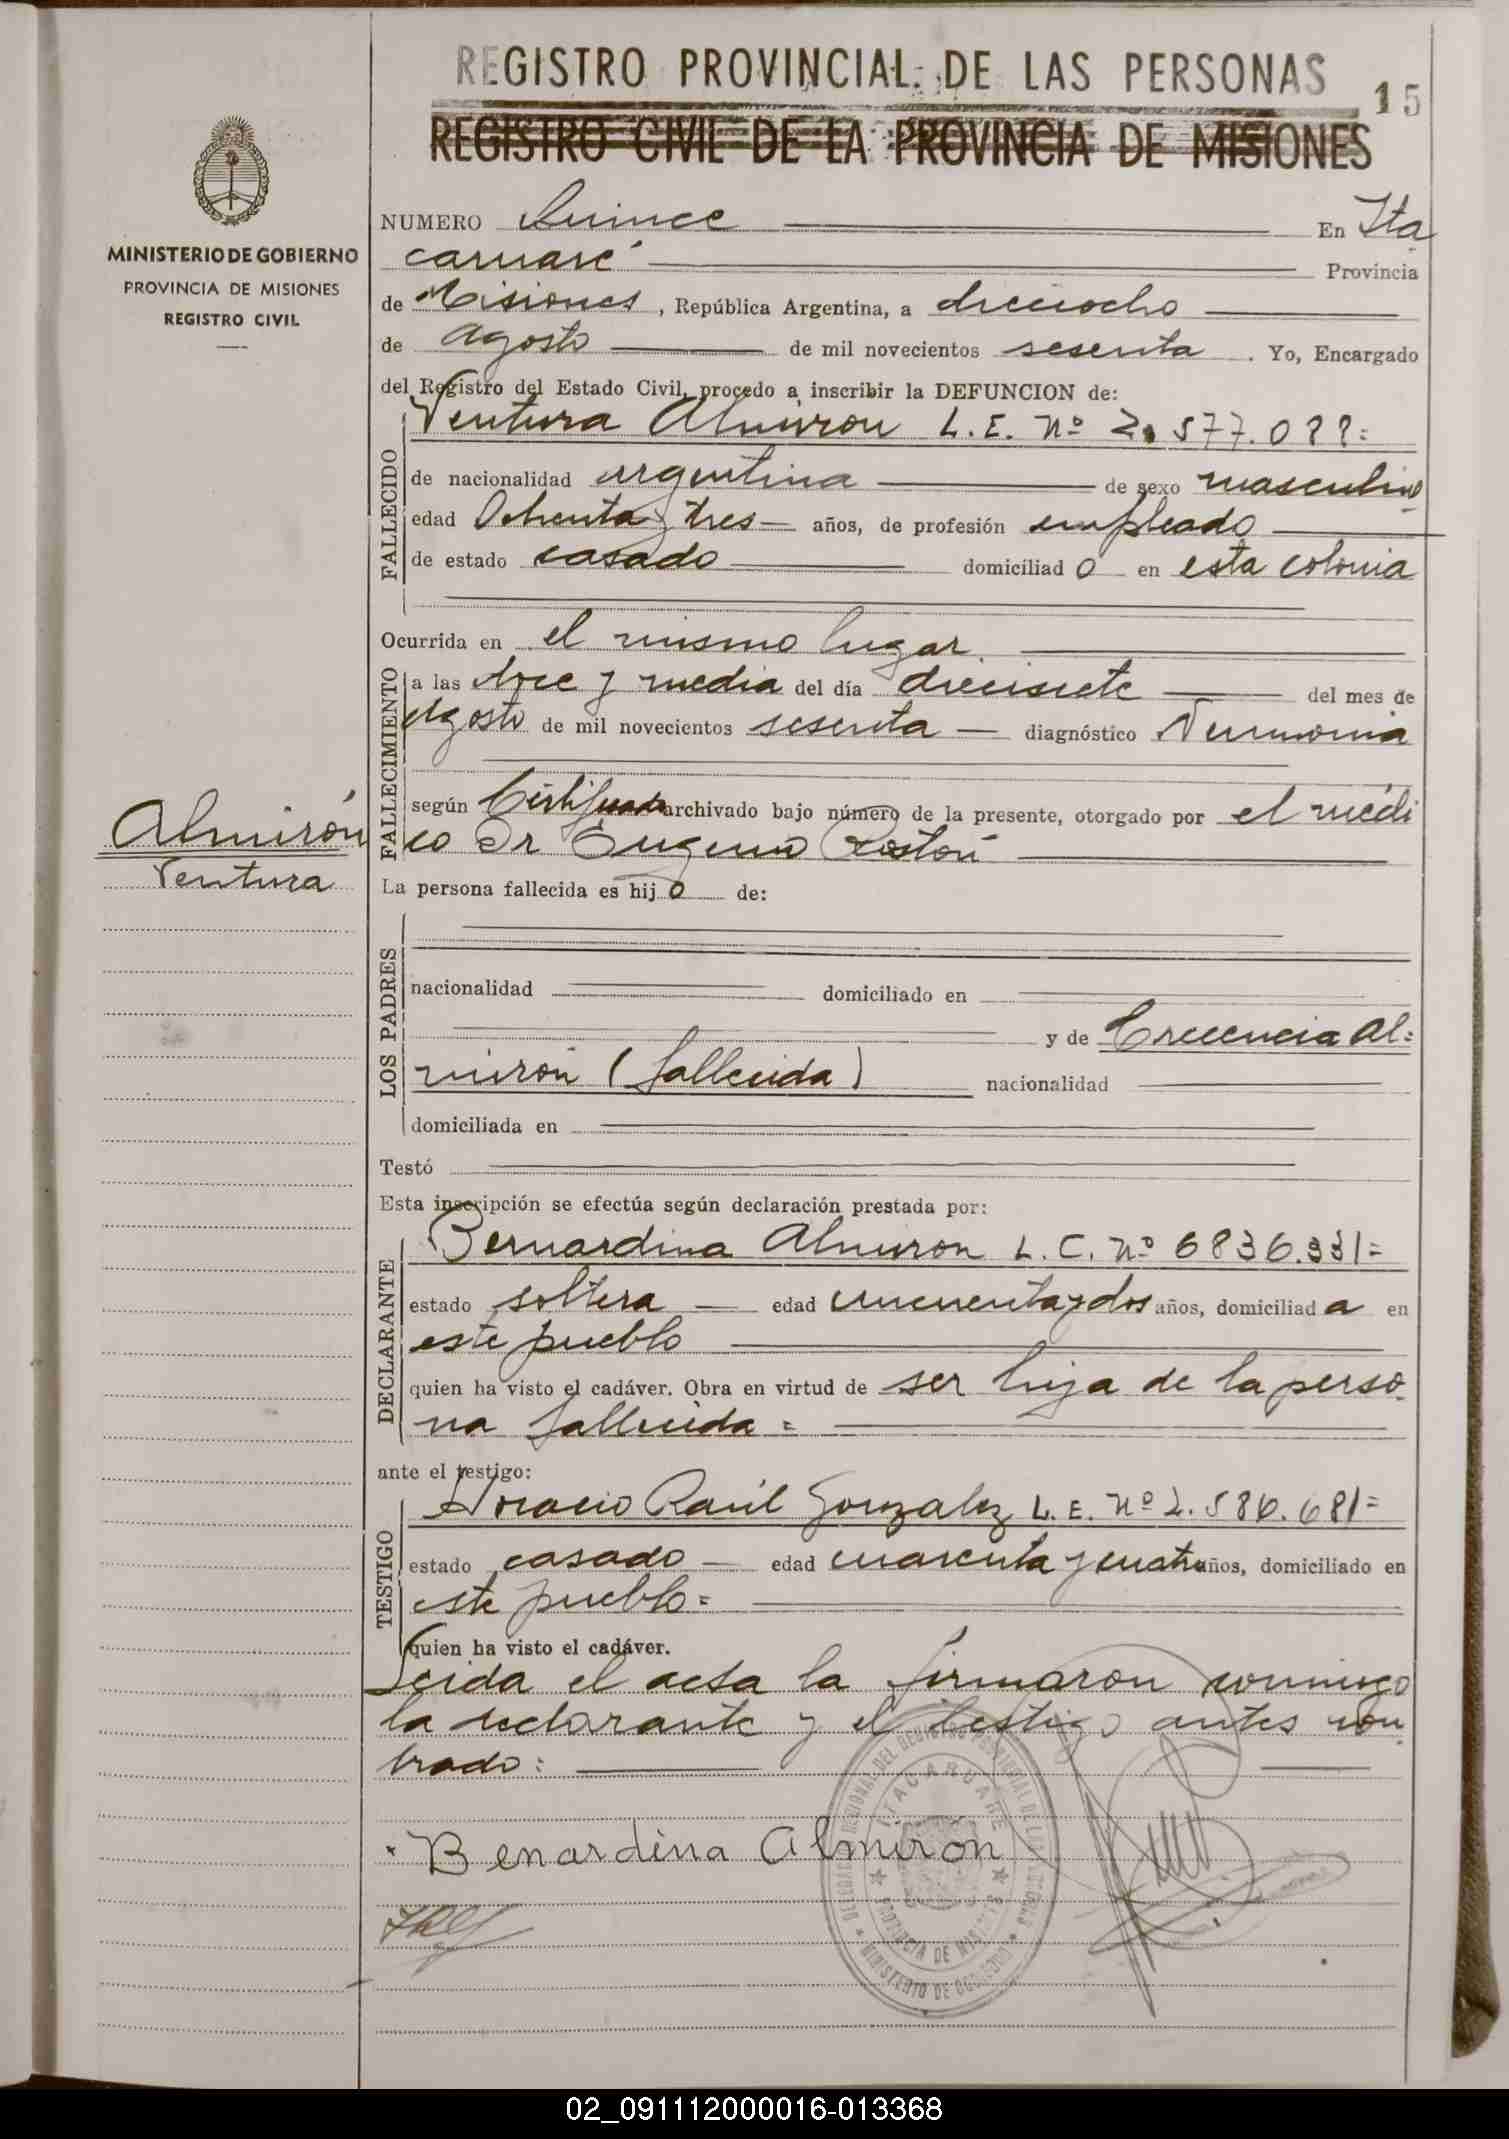 REGISTRO PROVINCIAL DE LAS PERSONAS
15
REGISTRO CIVIL DE LA PROVINCIA DE MISIONES
MINISTERIO DE GOBIERNO
PROVINCIA DE MISIONES
REGISTRO CIVIL
NUMERO Quince En Ita
caruaré Provincia
de Misiones, República Argentina, a dieciocho
de agosto de mil novecientos sesenta. Yo, Encargado
del Registro del Estado Civil, procedo a inscribir la DEFUNCION de:
FALLECIDO
Ventura Almiron L.E. Nº 2.577.
de nacionalidad argentina de sexo masculino
edad Ochenta y tres años, de profesión empleado
de estado casado domiciliado en esta colonia
Ocurrida en el mismo lugar.
FALLECIMIENTO
a las doce y media del día diecisiete del mes de
agosto de mil novecientos sesenta diagnóstico Neumonia
según Certificado archivado bajo número de la presente, otorgado por el médi
co Dr Eugenio
Almirón
Ventura
La persona fallecida es hijo de:
LOS PADRES
nacionalidad domiciliado en
y de Crecencia Al=
mirón (fallecida) nacionalidad
domiciliada en
Testó
Esta inscripción se efectúa según declaración prestada por:
DECLARANTE
Bernardina Almiron L.C. Nº 6836.331=
estado soltera edad cincuenta y dos años, domiciliada en
este pueblo
quien ha visto el cadáver. Obra en virtud de ser hija de la perso
na fallecida=
ante el testigo:
TESTIGO
Horacio Raúl Gonzalez L.E. Nº 2.586.681=
estado casado edad cuarenta y cuatro años, domiciliado en
este pueblo=
quien ha visto el cadáver.
Leida el acta la firmaron conmigo
la declarante y el testigo antes nom
brado:
DELEGACION REGIONAL DEL REGISTRO PROVINCIAL DE LAS PERSONAS
ITACARUARE
PROVINCIA DE MISIONES
MINISTERIO DE GOBIERNO
Benardina Almiron
02_091112000016-013368